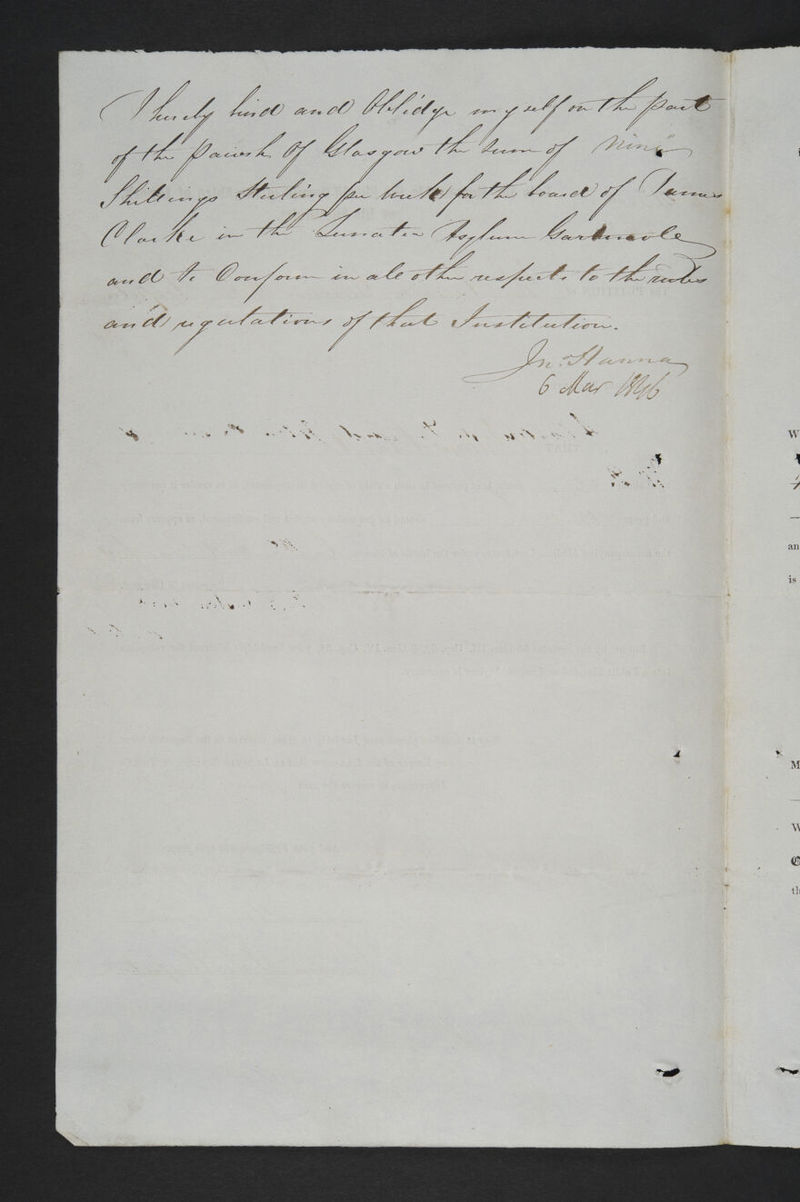 I hereby bind and Oblidge myself on the part
of the parish of Glasgow the sum of Nine
Shillings Sterling per week for the board of James
Clarke in the Lunatic Asylum Gartnavole
and to Conform in all other respects to the rules
and regulations of that Institution.
Jn: Hanna
6 Mar 1846
W
an
is
M
W
th